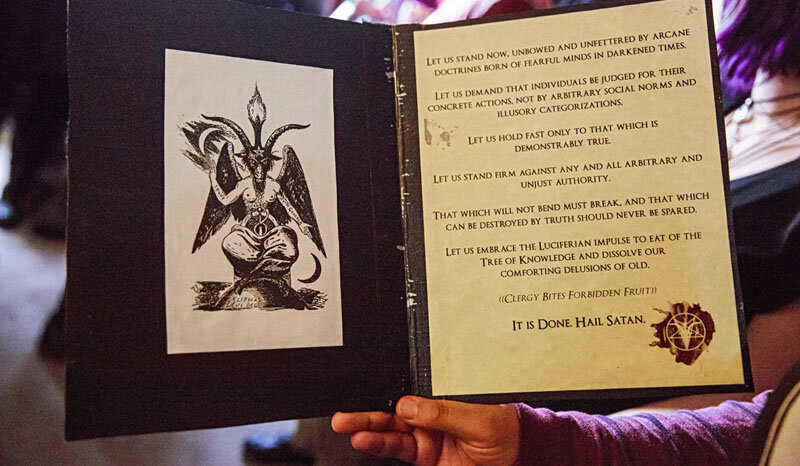 ELIPHAS
LET US STAND NOW, UNBOWED AND UNFETTERED BY ARCANE
DOCTRINES BORN OF FEARFUL MINDS IN DARKENED TIMES.
LET US DEMAND THAT INDIVIDUALS BE JUDGED FOR THEIR
CONCRETE ACTIONS, NOT BY ARBITRARY SOCIAL NORMS AND
ILLUSORY CATEGORIZATIONS.
LET US HOLD FAST ONLY TO THAT WHICH IS
DEMONSTRABLY TRUE.
LET US STAND FIRM AGAINST ANY AND ALL ARBITRARY AND
UNJUST AUTHORITY.
THAT WHICH WILL NOT BEND MUST BREAK, AND THAT WHICH
CAN BE DESTROYED BY TRUTH SHOULD NEVER BE SPARED.
LET US EMBRACE THE LUCIFERIAN IMPULSE TO EAT OF THE
TREE OF KNOWLEDGE AND DISSOLVE OUR
COMFORTING DELUSIONS OF OLD.
((CLERGY BITES FORBIDDEN FRUIT))
IT IS DONE. HAIL SATAN.